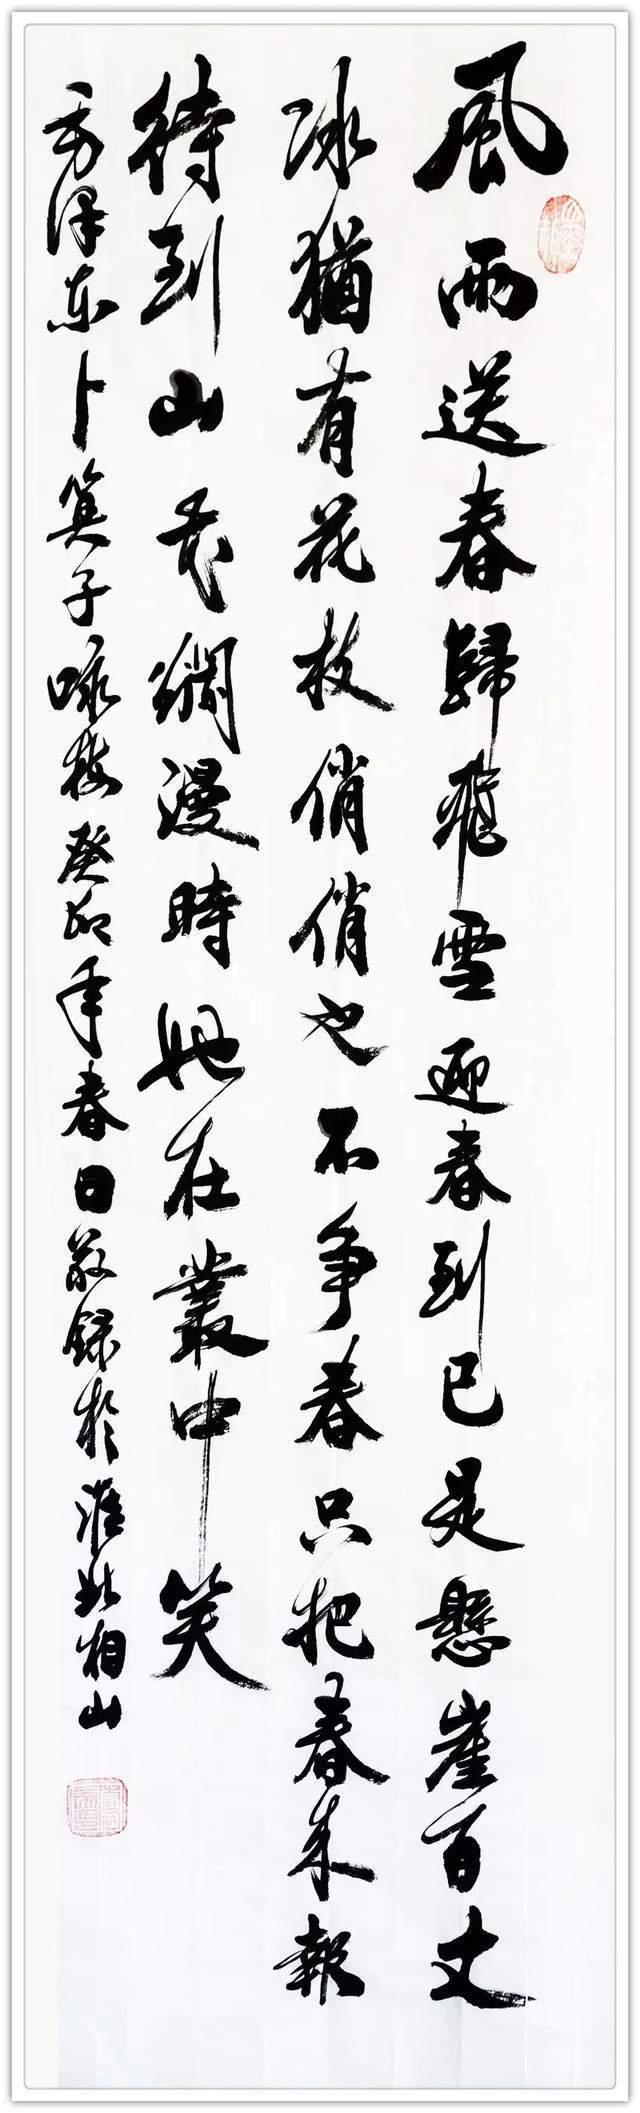 風雨送春歸飛雪迎春到已是懸崖百丈
冰猶有花枝俏俏也不争春只把春来報
待到山花爛漫時她在叢中笑
毛澤东卜算子咏梅癸卯年春日敬録於淮北相山